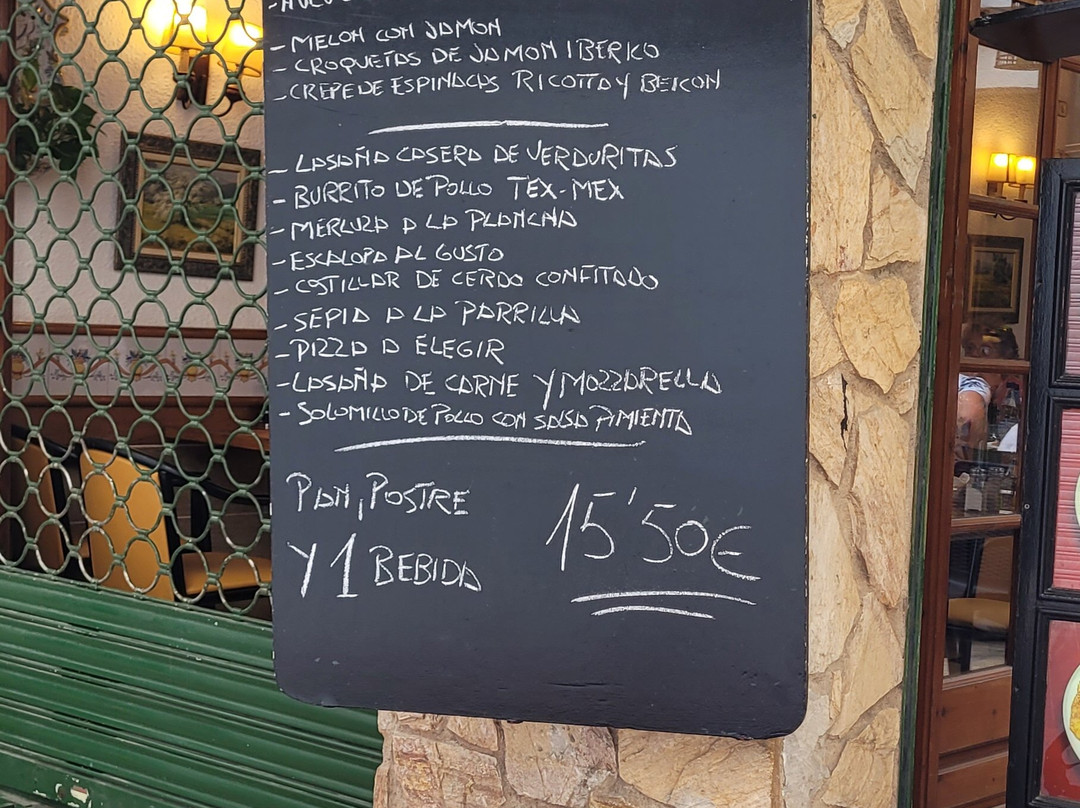 - MELON CON JAMON
- CROQUETAS DE JAMON IBERICO
- CREPE DE ESPINACAS RICOTTA Y BEICON
- LASAÑA CASERA DE VERDURITAS
- BURRITO DE POLLO TEX-MEX
- MERLUZA A LA PLANCHA
- ESCALOPA AL GUSTO
- COSTILLAR DE CERDO CONFITADO
- SEPIA A LA PARRILLA
- PIZZA A ELEGIR
- LASAÑA DE CARNE Y MOZZARELLA
- SOLOMILLO DE POLLO CON SALSA PIMIENTA
PAN, POSTRE
Y 1 BEBIDA
15'50€